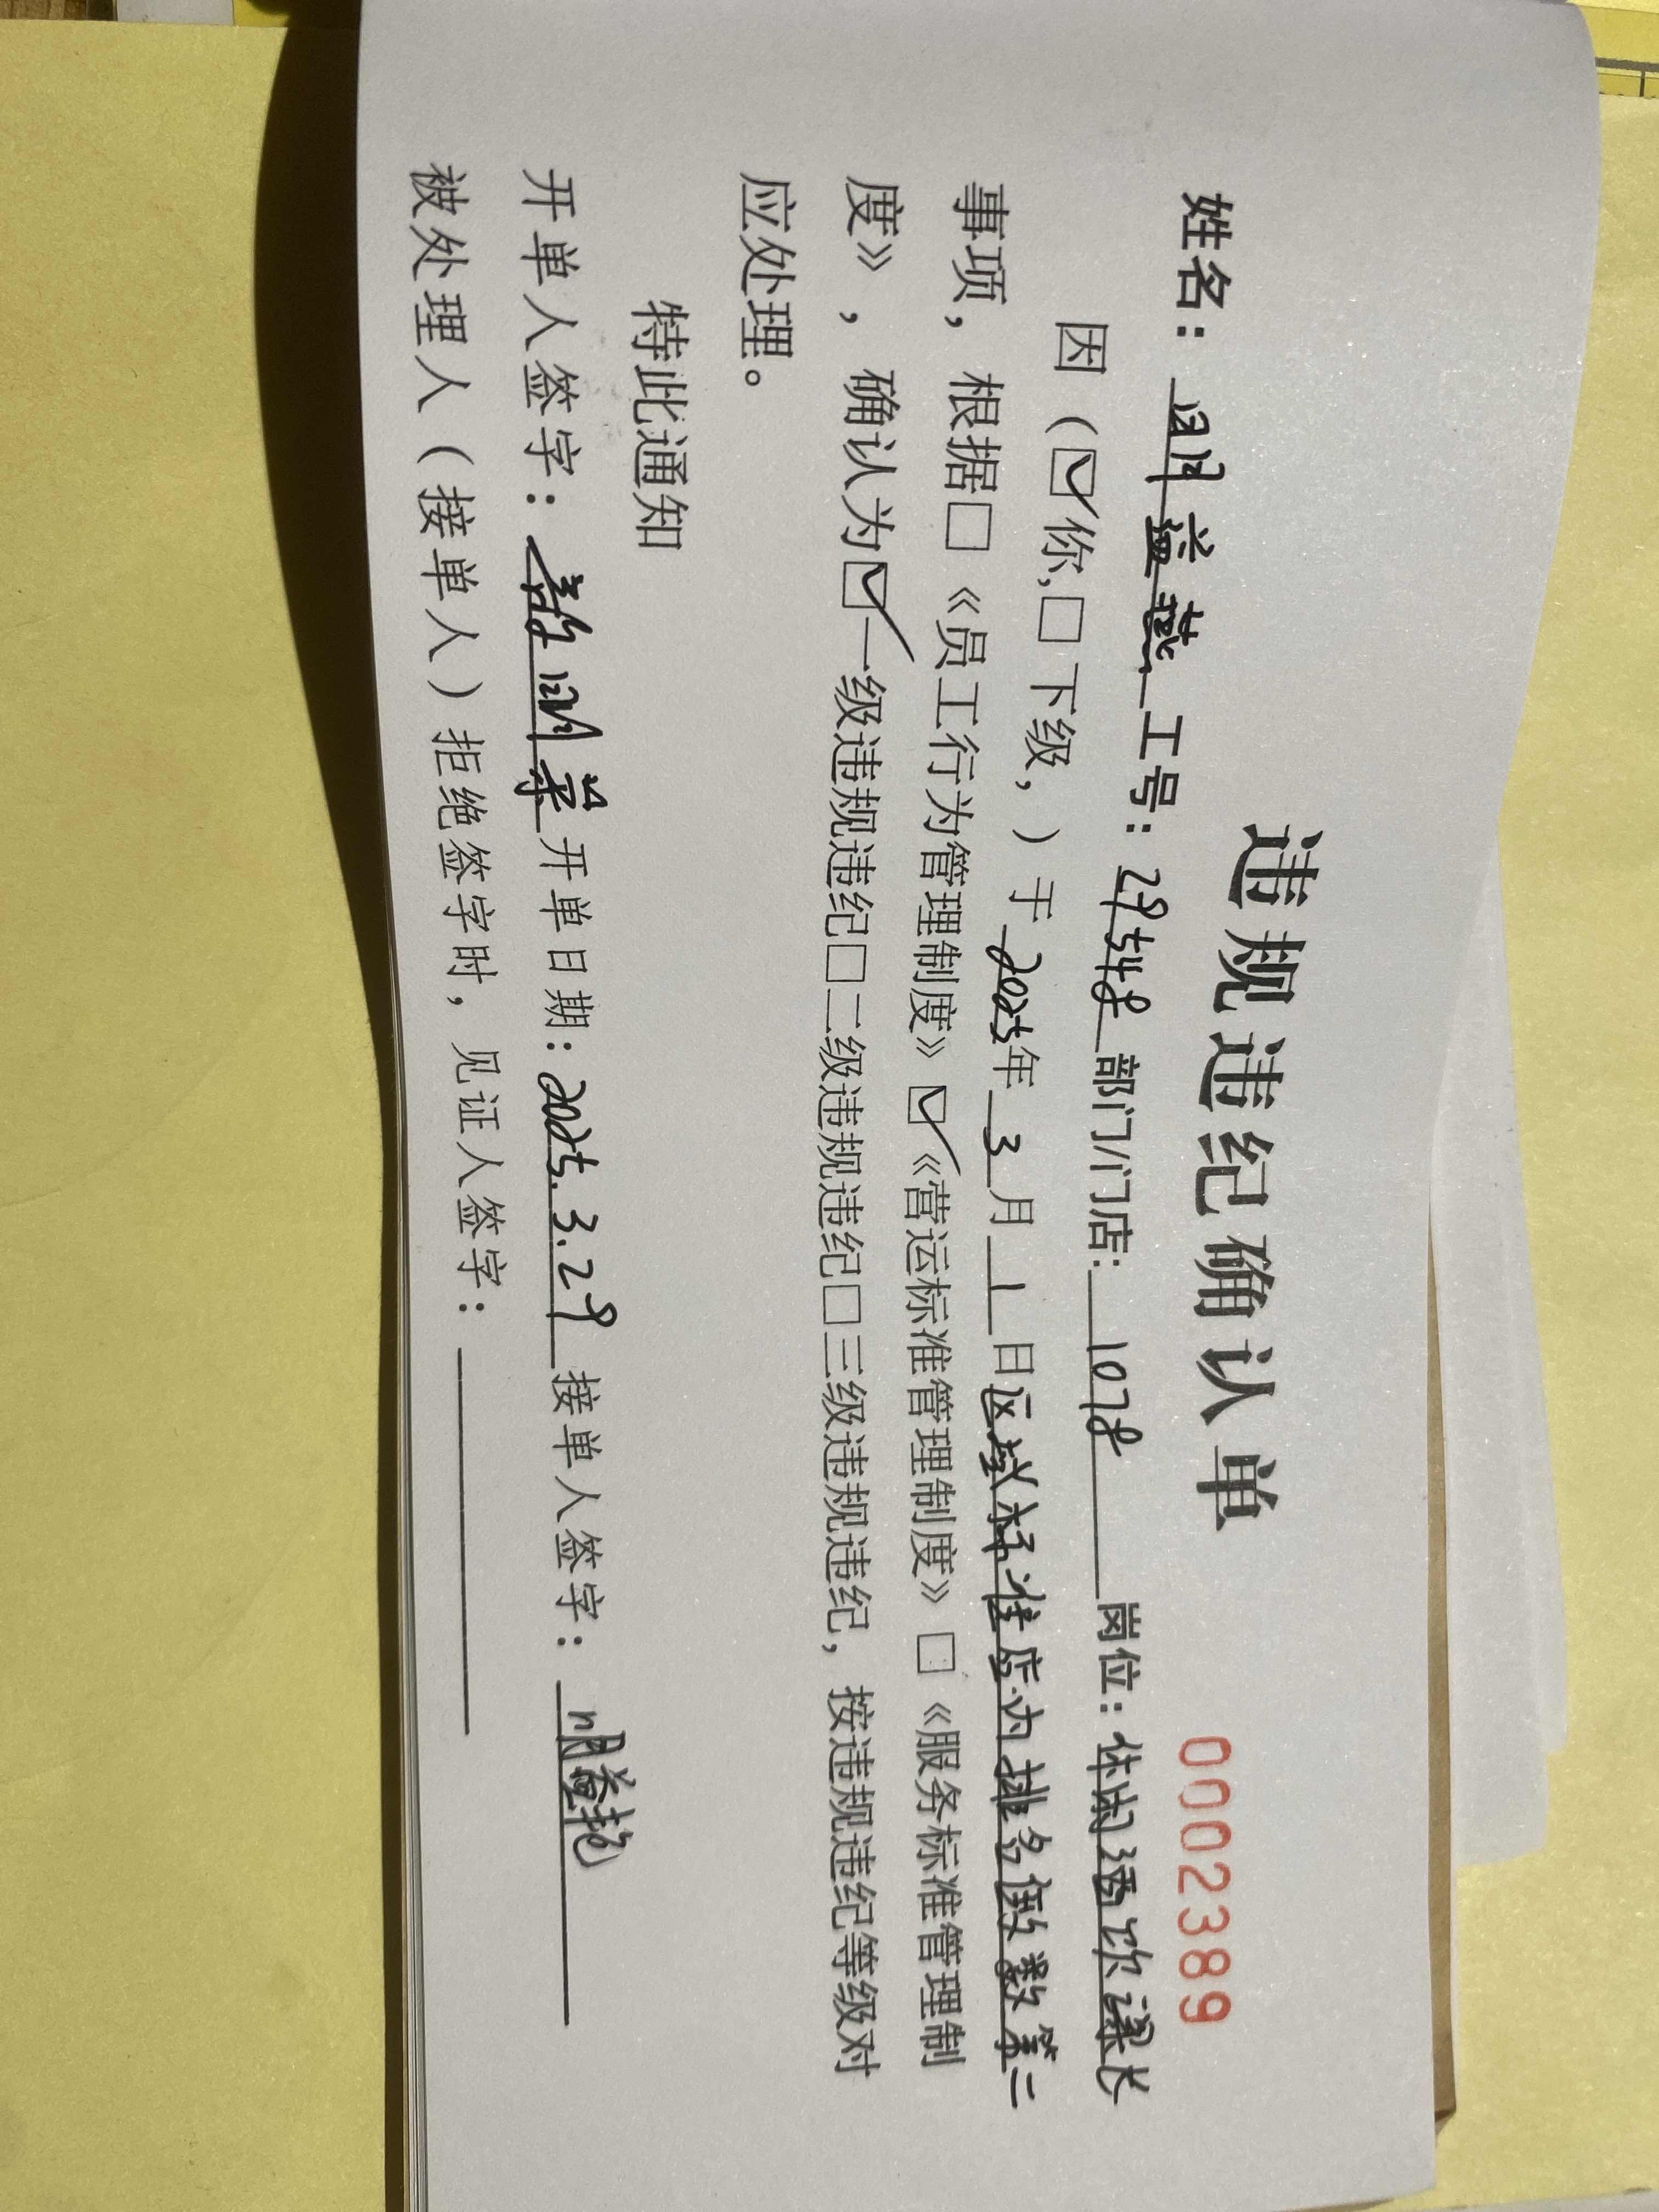 违规违纪确认单
0002389
姓名：周益燕 工号：29548 部门/门店：1078 岗位：休闲酒饮课长
因（☑你,□下级，）于2025年3月1日区域标准店内排名倒数第二
事项，根据□《员工行为管理制度》☑《营运标准管理制度》□《服务标准管理制
度》，确认为☑一级违规违纪□二级违规违纪□三级违规违纪，按违规违纪等级对
应处理。
特此通知
开单人签字： 开单日期：2025.3.29 接单人签字：周益艳
被处理人（接单人）拒绝签字时，见证人签字：